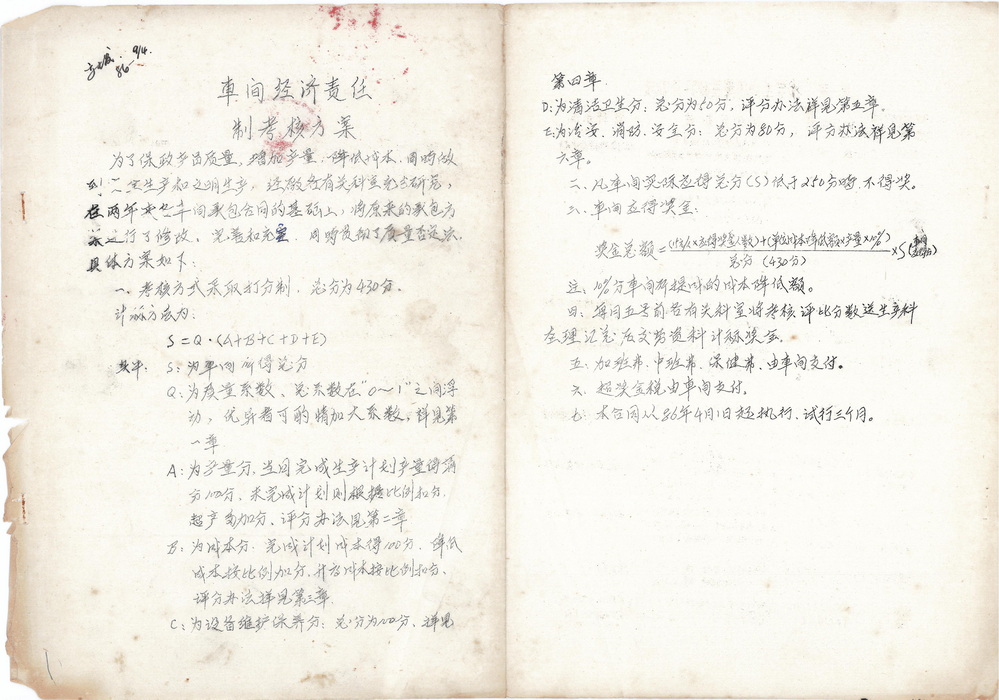 9/4.
86
車间经济责任
制考核方案
为了保证产品质量,增加产量.降低成本.同时做
到安全生产和文明生产,经厂各有关科室充分研究,
在两年来车间承包合同的基础上,将原来的承包方
案进行了修改、完善和充实.同时贯彻了质量否定法,
具体方案如下:
一、考核方式采取打分制,总分为430分.
计算方法为:
S=Q·(A+B+C+D+E)
其中. S:为車间所得总分
Q:为质量系数、总系数在"0~1"之间浮
动,优异者可酌情加大系数,详见第
一章
A:为产量分,当月完成生产计划产量得满
分100分、未完成计划则根据比例扣分.
超产为加分、评分办法见第二章
B:为成本分:完成计划成本得100分、降低
成本按比例加分.升高成本按比例扣分.
评分办法详见第三章
C:为设备维护保养分:总分为100分、详见
第四章.
D:为清洁卫生分:总分为50分,评分办法详见第五章。
E:为治安、消防、安全分:总分为80分,评分办法详见第
六章。
二、凡车间奖际应得总分(S)低于250分时.不得奖。
三、車间应得奖金:
奖金总额=
总分(430分)
×S
注、10%分车间所提成的成本降低额。
四:每月五号前各有关科室将考核评比分数送生产科
企理汇总后交劳资科计称奖金.
五、加班费.中班费.保健费.由車间支付。
六.超奖金税由車间支付。
七:本合同从86年4月1日起执行、试行三个月。